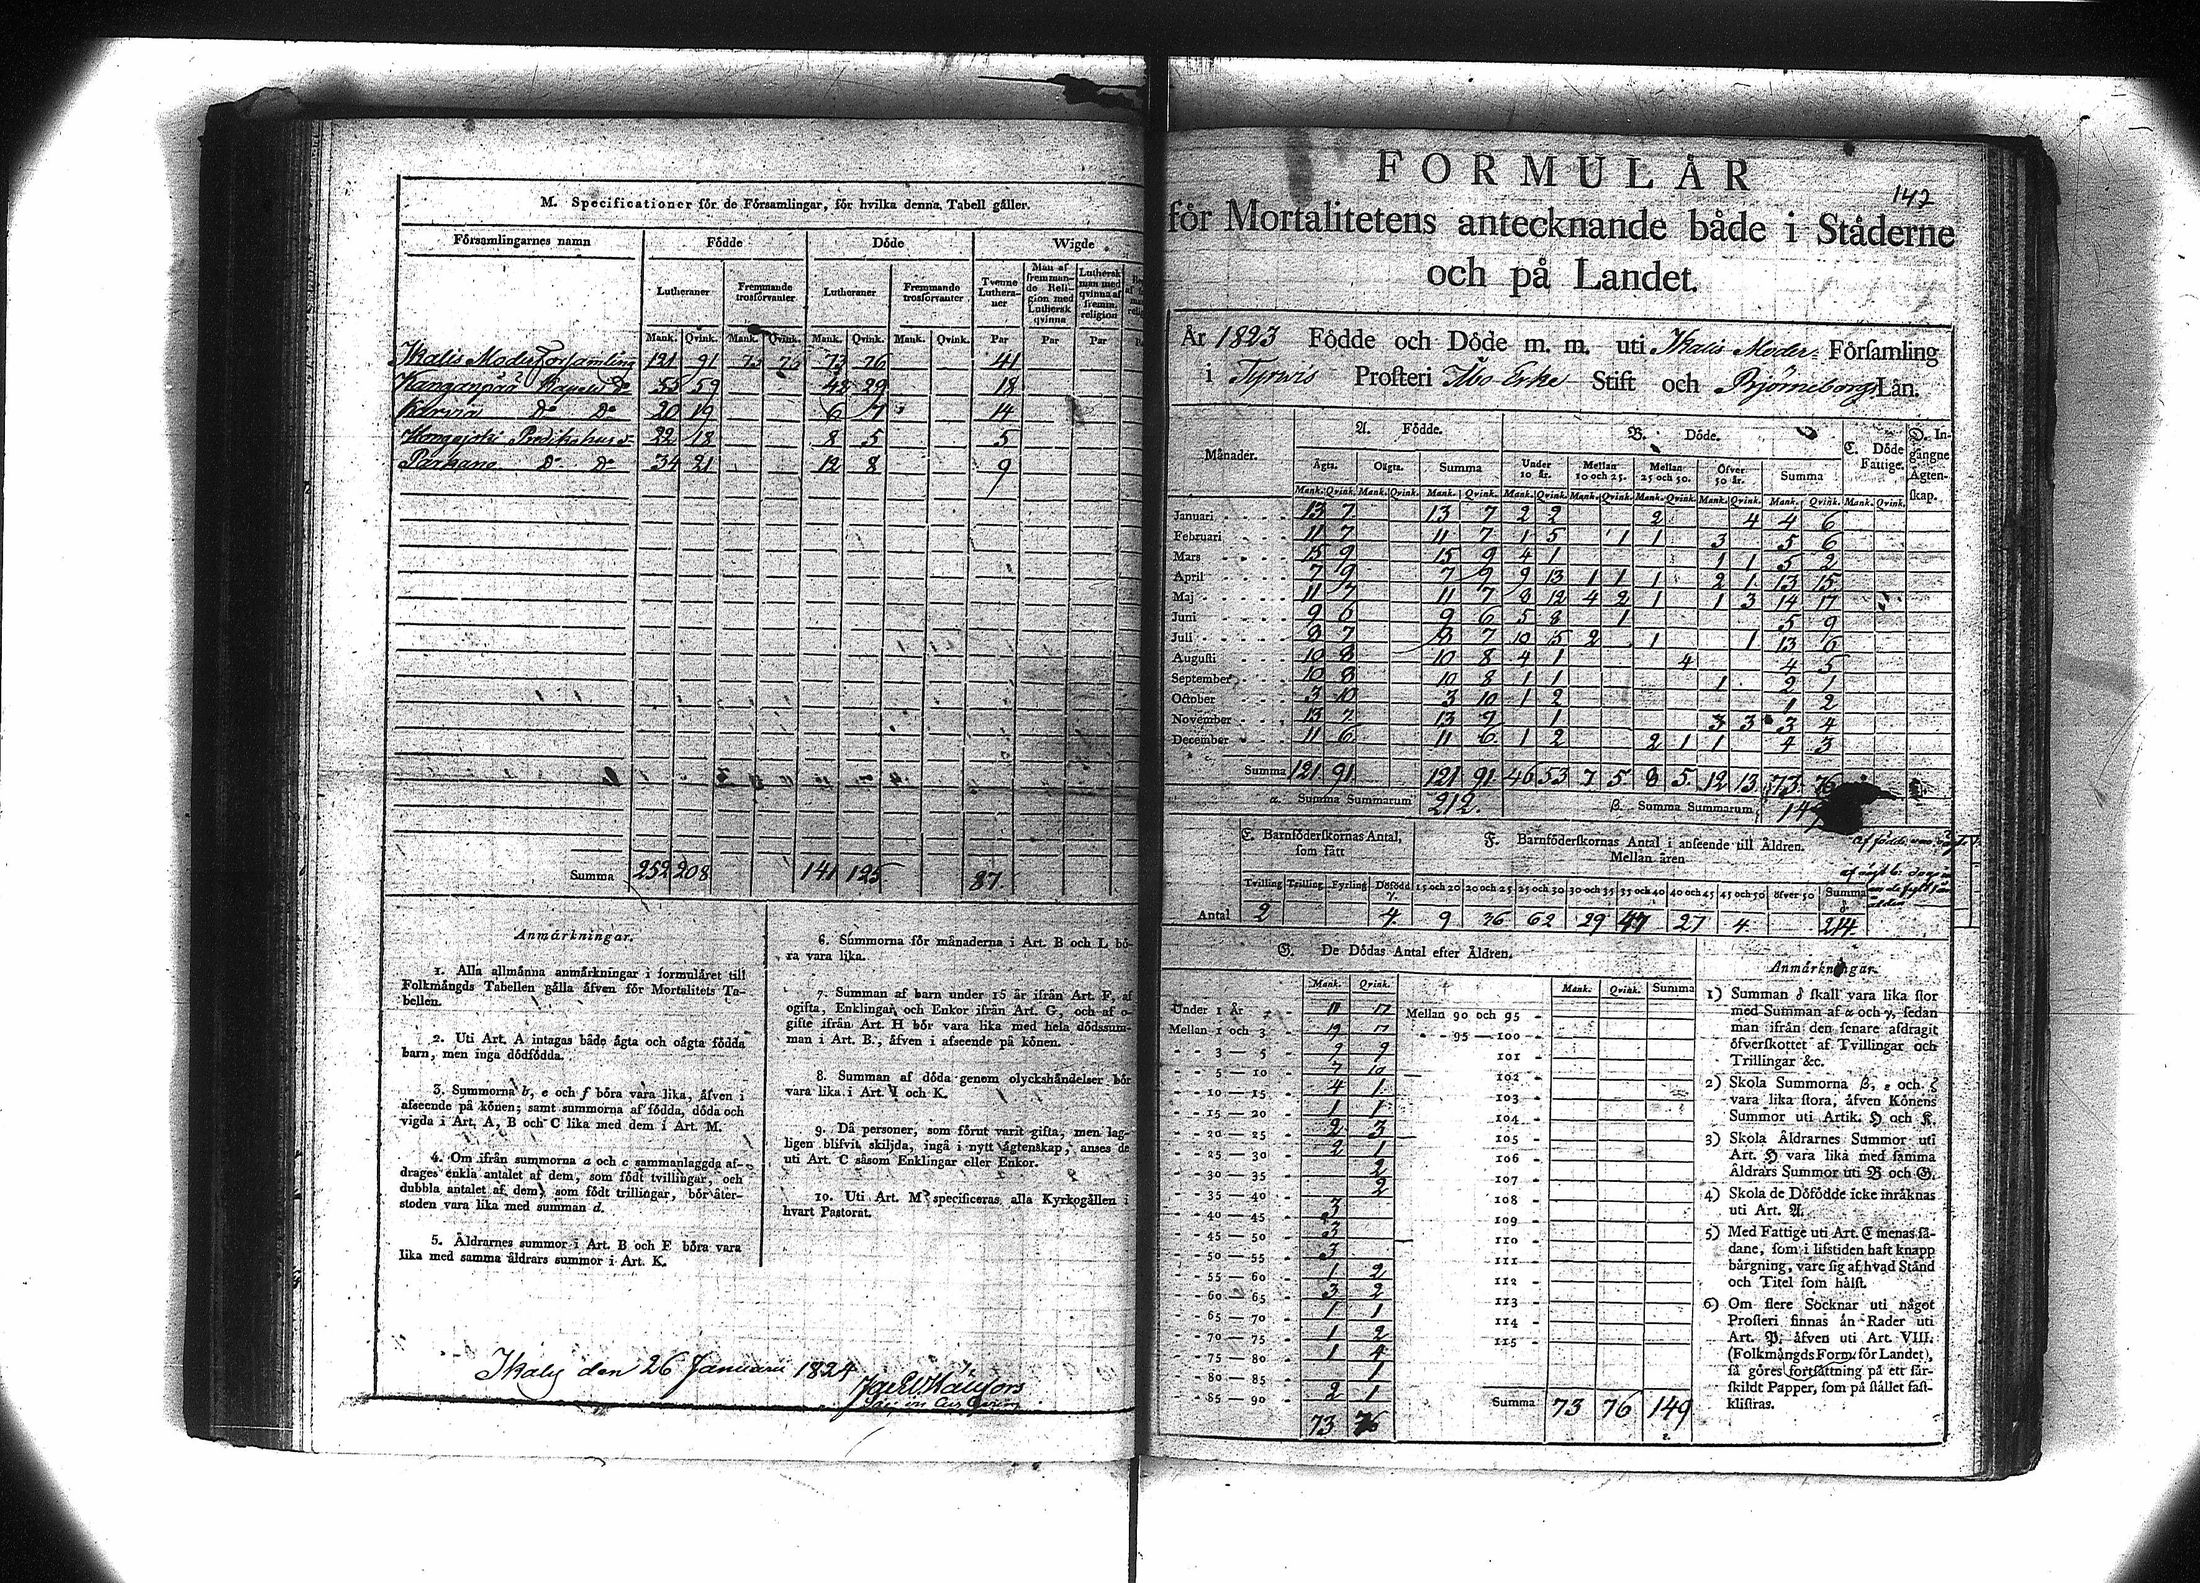 M. Specificationer för de Församlingar, för hvilka denna Tabell gäller.
Församlingarnes namn Födde Döde Wigde
Lutheraner Fremmande trosförvanter Lutheraner Fremmande trosförvanter Tvenne Lutheraner Man af fremmande Religion med Luthersk qvinna Luthersk man med qvinna af fremm. religion
Mank. Qvink. Mank. Qvink. Mank. Qvink. Mank. Qvink. Par Par Par
Ikalis Moder Församling 121 91 73 76 73 76 41
Kangangää Kapells Do 55 59 42 29 18
Karvia Do Do 20 19 6 7 14
22 18 8 5 5
Parkano Do Do 34 21 12 8 9
Summa 252 208 141 125 87.
Anmärkningar.
1. Alla allmänna anmärkningar i formuläret till
Folkmängds Tabellen gälla äfven för Mortalitets Ta-
bellen.
2. Uti Art. A intagas både ägta och oägta födda
barn, men inga dödfödda.
3. Summorna b, e och f böra vara lika, äfven i
afseende på könen; samt summorna af födda, döda och
vigda i Art. A, B och C lika med dem i Art. M.
4. Om ifrån summorna a och c sammanlaggda af-
drages enkla antalet af dem, som födt tvillingar, och
dubbla antalet af dem, som födt trillingar, bör åter-
stoden vara lika med summan d.
5. Äldrarnes summor i Art. B och E böra vara
lika med samma äldrars summor i Art. K.
6. Summorna för månaderna i Art. B och L bö-
ra vara lika.
7. Summan af barn under 15 år ifrån Art. F, af
ogifta, Enklingar och Enkor ifrån Art. G, och af o-
gifte ifrån Art. H bör vara lika med hela dödssum-
man i Art. B., äfven i afseende på könen.
8. Summan af döda genom olyckshändelser bör
vara lika i Art. I och K.
9. Då personer, som förut varit gifta, men lag-
ligen blifvit skiljda, ingå i nytt ägtenskap, anses de
uti Art. C såsom Enklingar eller Enkor.
10. Uti Art. M specificeras alla Kyrkogällen i
hvart Pastorat.
Ikalis den 26 Januarii 1824
FORMULÄR
för Mortalitetens antecknande både i Städerne
och på Landet.
142
År 1823 Födde och Döde m. m. uti Ikalis Moder Församling
i Tyrwis Prosteri Åbo Erke Stift och Björneborgs Län.
Månader. A. Födde. B. Döde. C. Döde Fattige. D. Ingångne Ägtenskap.
Ägta. Oägta. Summa Under 10 år. Mellan 10 och 25. Mellan 25 och 50. Öfver 50 år. Summa
Mank. Qvink. Mank. Qvink. Mank. Qvink. Mank. Qvink. Mank. Qvink. Mank. Qvink. Mank. Qvink. Mank. Qvink. Mank. Qvink.
Januari 13 7 13 7 2 2 2 4 4 6
Februari 11 7 11 7 1 5 1 1 3 5 6
Mars 15 9 15 9 4 1 1 1 5 2
April 7 9 7 9 9 13 1 1 1 2 1 13 15
Maj 11 7 11 7 8 12 4 2 1 1 3 14 17
Juni 9 6 9 6 5 8 1 5 9
Juli 8 7 8 7 10 5 2 1 1 13 6
Augusti 10 8 10 8 4 1 4 4 5
September 10 8 10 8 1 1 1 2 1
October 3 10 3 10 1 2 1 2
November 13 7 13 9 1 3 3 3 4
December 11 6 11 6 1 2 2 1 1 4 3
Summa 121 91 121 91 46 53 7 5 8 5 12 13 73 76
α. Summa Summarum 212. β. Summa Summarum
E. Barnföderskornas Antal, som fått F. Barnföderskornas Antal i anseende till Åldren.
Mellan åren
Tvilling Trilling Fyrling Dödfödd 15 och 20 20 och 25 25 och 30 30 och 35 35 och 40 40 och 45 45 och 50 öfver 50 Summa
Antal 2 4 9 36 62 29 47 27 4 214.
G. De Dödas Antal efter Åldren.
Mank. Qvink. Mank. Qvink. Summa
Under 1 År 11 17 Mellan 90 och 95
Mellan 1 och 3 19 17 95 — 100
3 — 5 9 9 101
5 — 10 7 10 102
10 — 15 4 1 103
15 — 20 1 1 104
20 — 25 2 3 105
25 — 30 2 1 106
30 — 35 2 107
35 — 40 2 108
40 — 45 3 109
45 — 50 3 110
50 — 55 3 111
55 — 60 1 2 112
60 — 65 3 2 113
65 — 70 1 1 114
70 — 75 1 2 115
75 — 80 1 4
80 — 85 1
85 — 90 2 1
73 76 Summa 73 76 149
Anmärkningar.
1) Summan δ skall vara lika stor
med Summan af α och γ, sedan
man ifrån den senare afdragit
öfverskottet af Tvillingar och
Trillingar &c.
2) Skola Summorna β, ε och ζ
vara lika stora, äfven Könens
Summor uti Artik. H och K.
3) Skola Åldrarnes Summor uti
Art. H vara lika med samma
Åldrars Summor uti B och G.
4) Skola de Döfödde icke inräknas
uti Art. A.
5) Med Fattige uti Art. C menas så-
dane, som i lifstiden haft knapp
bärgning, vare sig af hvad Stånd
och Titel som hälst.
6) Om flere Socknar uti något
Prosteri finnas än Rader uti
Art. P, äfven uti Art. VIII.
(Folkmängds Form. för Landet),
så göres fortsättning på ett sär-
skildt Papper, som på stället fast-
klistras.